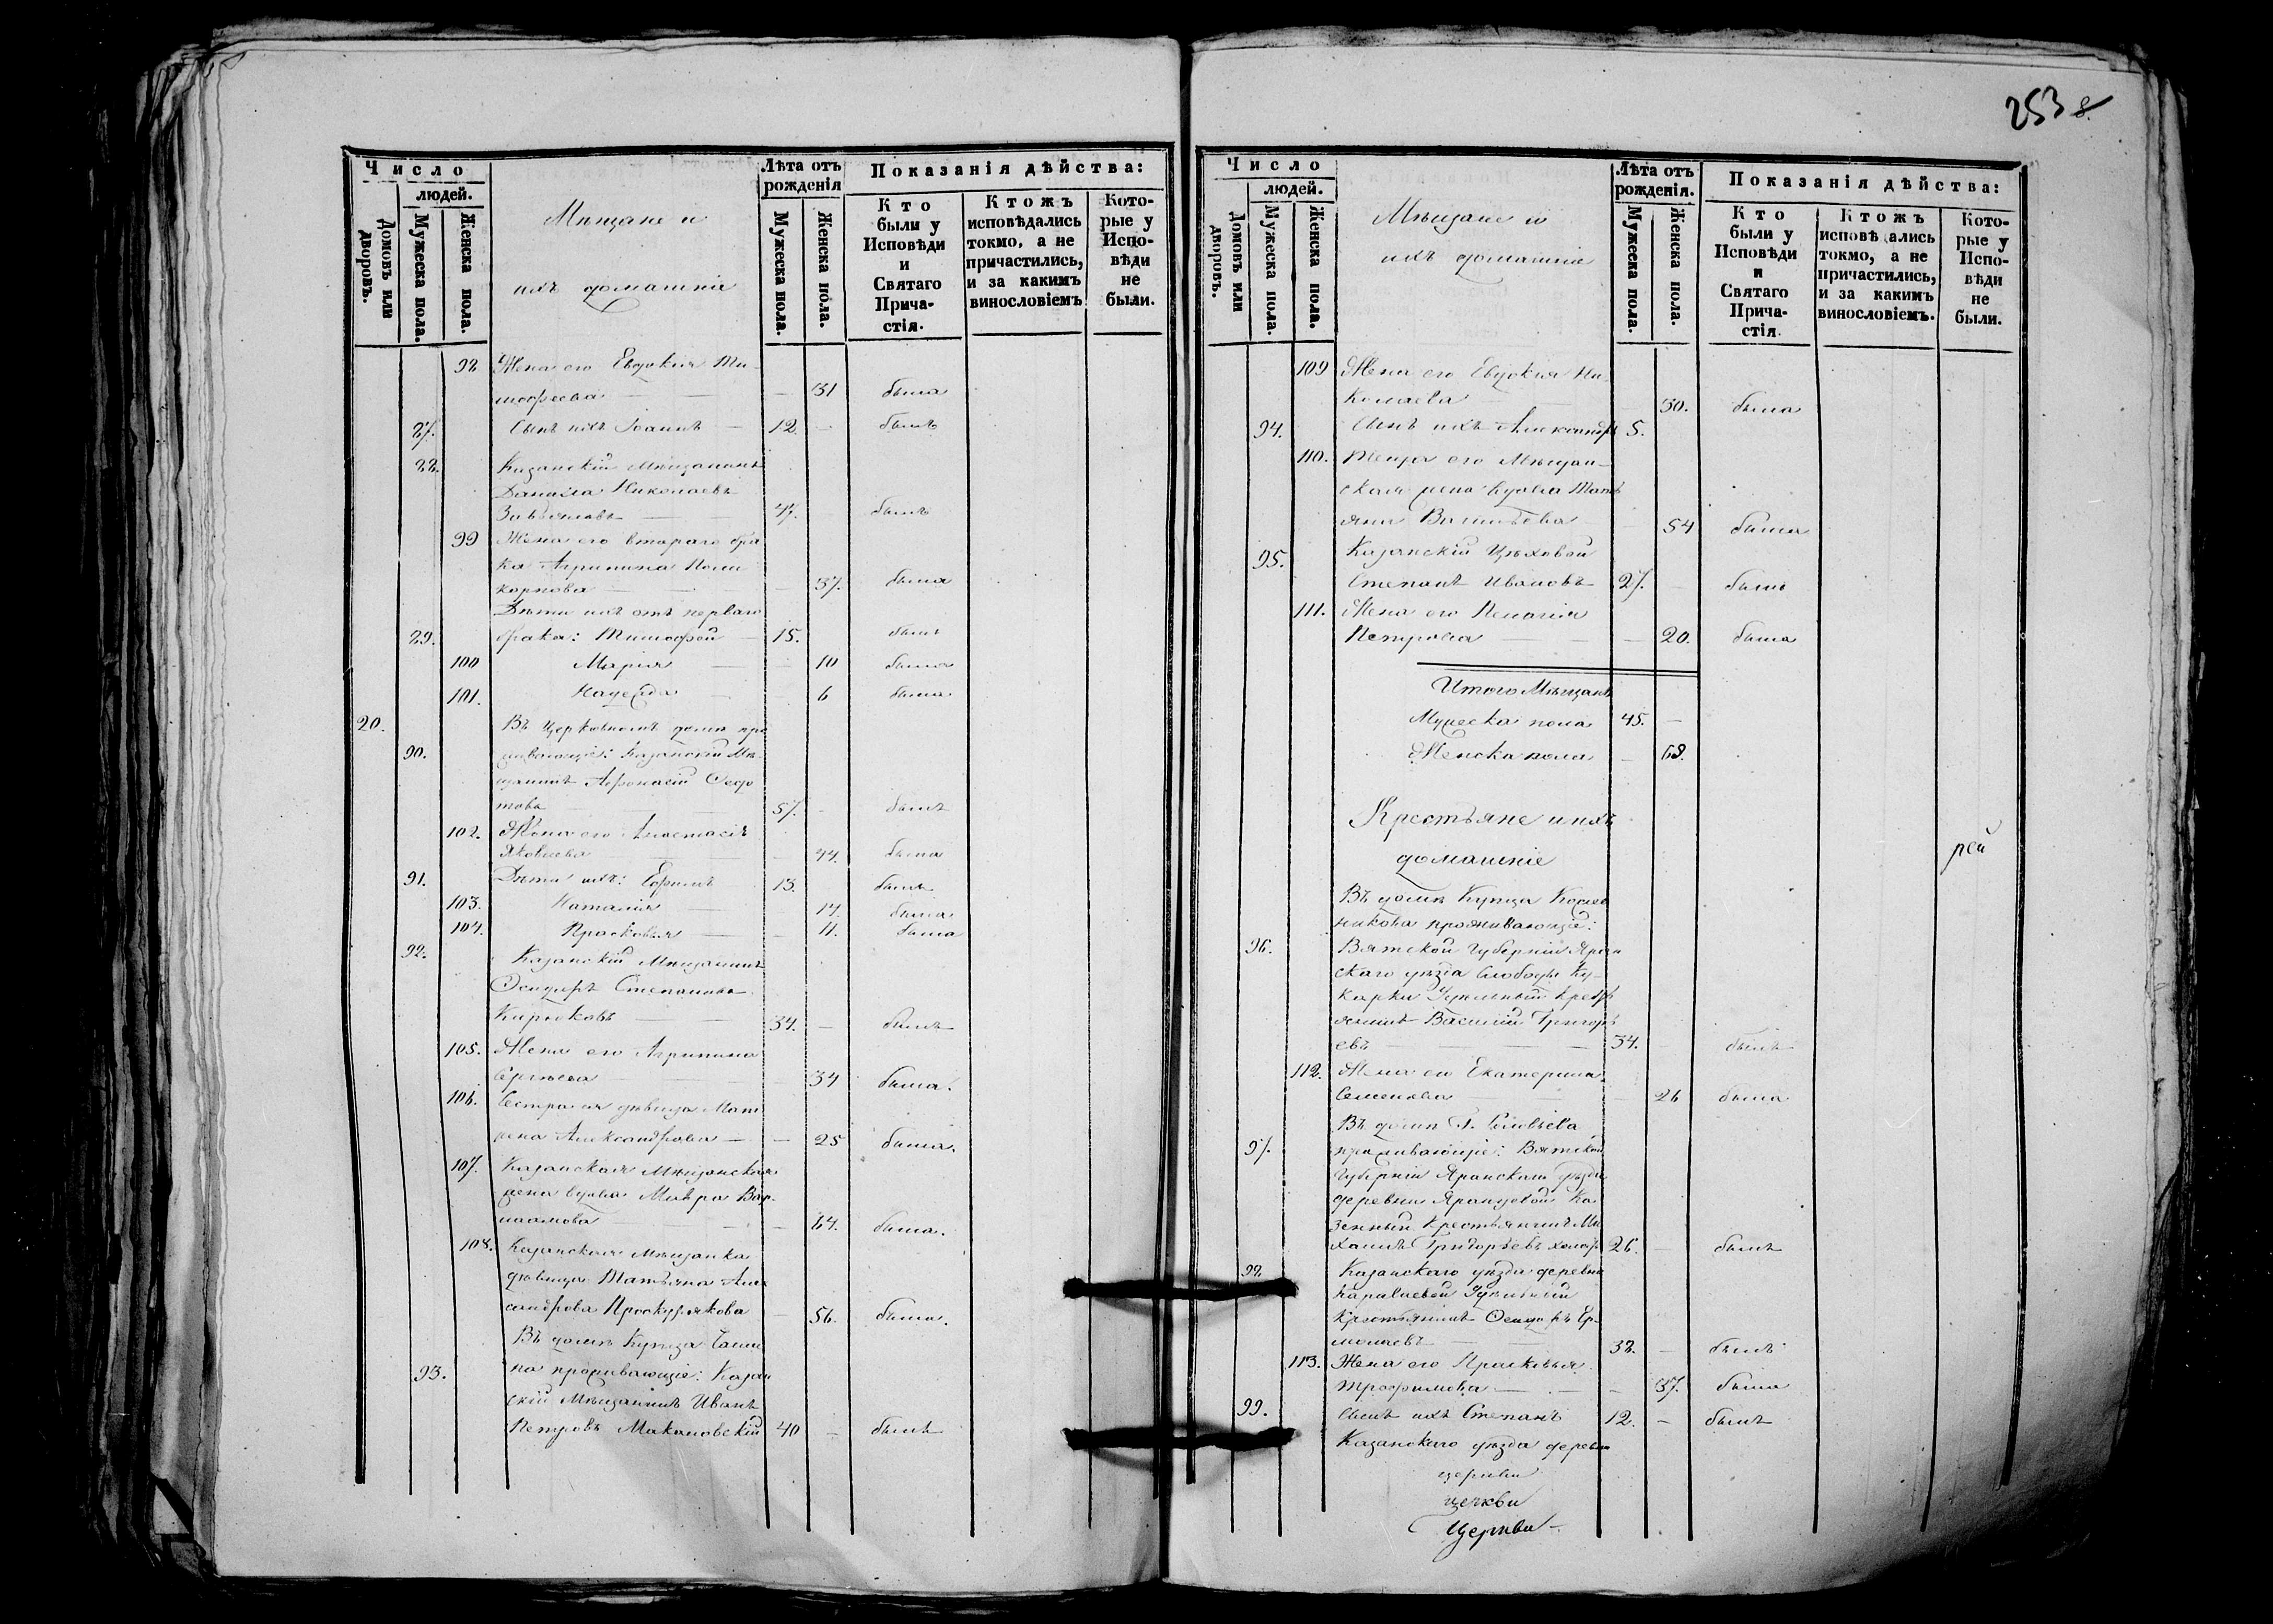 253 8.
Число
людей.
Домовъ или дворовъ.
Мужеска пола.
Женска пола.
Мѣщане и
ихъ домашніе
Лѣта отъ рожденія
Мужеска пола.
Женска пола.
Показанія дѣйства:
Кто были у Исповѣди и Святаго Прича-стія.
Ктожъ исповѣдались токмо, а не причастились, и за какимъ винословіемъ
Кото-рые у Испо-вѣди не были.
98 Жена его Евдокія Ти-
мофеева — — 31 была
87. Сынъ ихъ Іоаннъ — 12. — былъ
88. Казанскій Мѣщанинъ
Данила Николаевъ
Завьяловъ — 47. — былъ
99 Жена его втораго бра
ка Агрипина Поли
карпова — — 37. была
Дѣти ихъ отъ перваго
89. брака: Тимофей — 15. былъ
100 Марія — — 10 была
101. Надежда — 6 была
20. Въ Церковномъ домѣ про
90. живающіе: Казанскій Мѣ-
щанинъ Афонасій Федо
товъ — 57. — былъ
102. Жена его Анастасія
Яковлева — 44. была
91. Дѣти ихъ: Ефимъ 13. былъ
103. Наталія — — 14. была
104. Прасковья — — 11. была
92. Казанскій Мѣщанинъ
Ѳеодоръ Степановъ
Кирюковъ — 34. — былъ
105. Жена его Агрипина
Сергѣева 34 была.
106. Сестра ея дѣвица Мат
рена Александрова — — 25 была.
107. Казанская Мѣщанская
жена вдова Мавра Вар-
лаамова — — 64. была.
108. Казанская Мѣщанка
дѣвица Татьяна Алек
сандрова Проскурякова — 56. была.
Въ домѣ Купца
93. на проживающіе: Казан
скій Мѣщанинъ Иванъ
Петровъ Макановскій 40 — былъ
Число
людей.
Домовъ или дворовъ.
Мужеска пола.
Женска пола.
Мѣщане и
ихъ домашніе
Лѣта отъ рожденія.
Мужеска пола.
Женска пола.
Показанія дѣйства:
Кто были у Исповѣди и Святаго Прича-стія.
Ктожъ исповѣ ались токмо, а не причастились, и за какимъ винословіемъ.
Кото-рые у Испо-вѣди не были.
109 Жена его Евдокія Ни-
колаева 30. была
94. Сынъ ихъ Александръ 5.
110. Теща его Мѣщан-
ская жена вдова Тать
яна Васильева — 54 была
95. Казанскій Цѣховой
Степанъ Ивановъ 27. — былъ
111. Жена его Пелагія
Петрова — — 20. была
Итого Мѣщанъ
Мужеска пола 45. —
Женска пола — 68.
Крестьяне и ихъ
домашніе
рей
Въ домѣ Купца Кожев
никова проживающіе:
96. Вятской Губерніи Яран
скаго уѣзда Слободы Ку-
карки Удѣльный крест
янинъ Василій Григорь
евъ — — 34. — былъ
112. Жена его Екатерина
Семенова — — 26 была
Въ домѣ Г. Соловьева
97. проживающіе: Вятской
Губерніи Яранскаго уѣзда
деревни Яранцовой Ка
зенный крестьянинъ Ми
хаилъ Григорьевъ холос 26. — былъ
98. Казанскаго уѣзда деревни
Караваевой Удѣльный
Крестьянинъ Ѳеодоръ Ер-
молаевъ — 38. — былъ
113. Жена его Прасковья
Трофимова — — 37. была
99. Сынъ ихъ Степанъ 12. — былъ
Казанскаго уѣзда деревни
церкви
церкви
Церкви